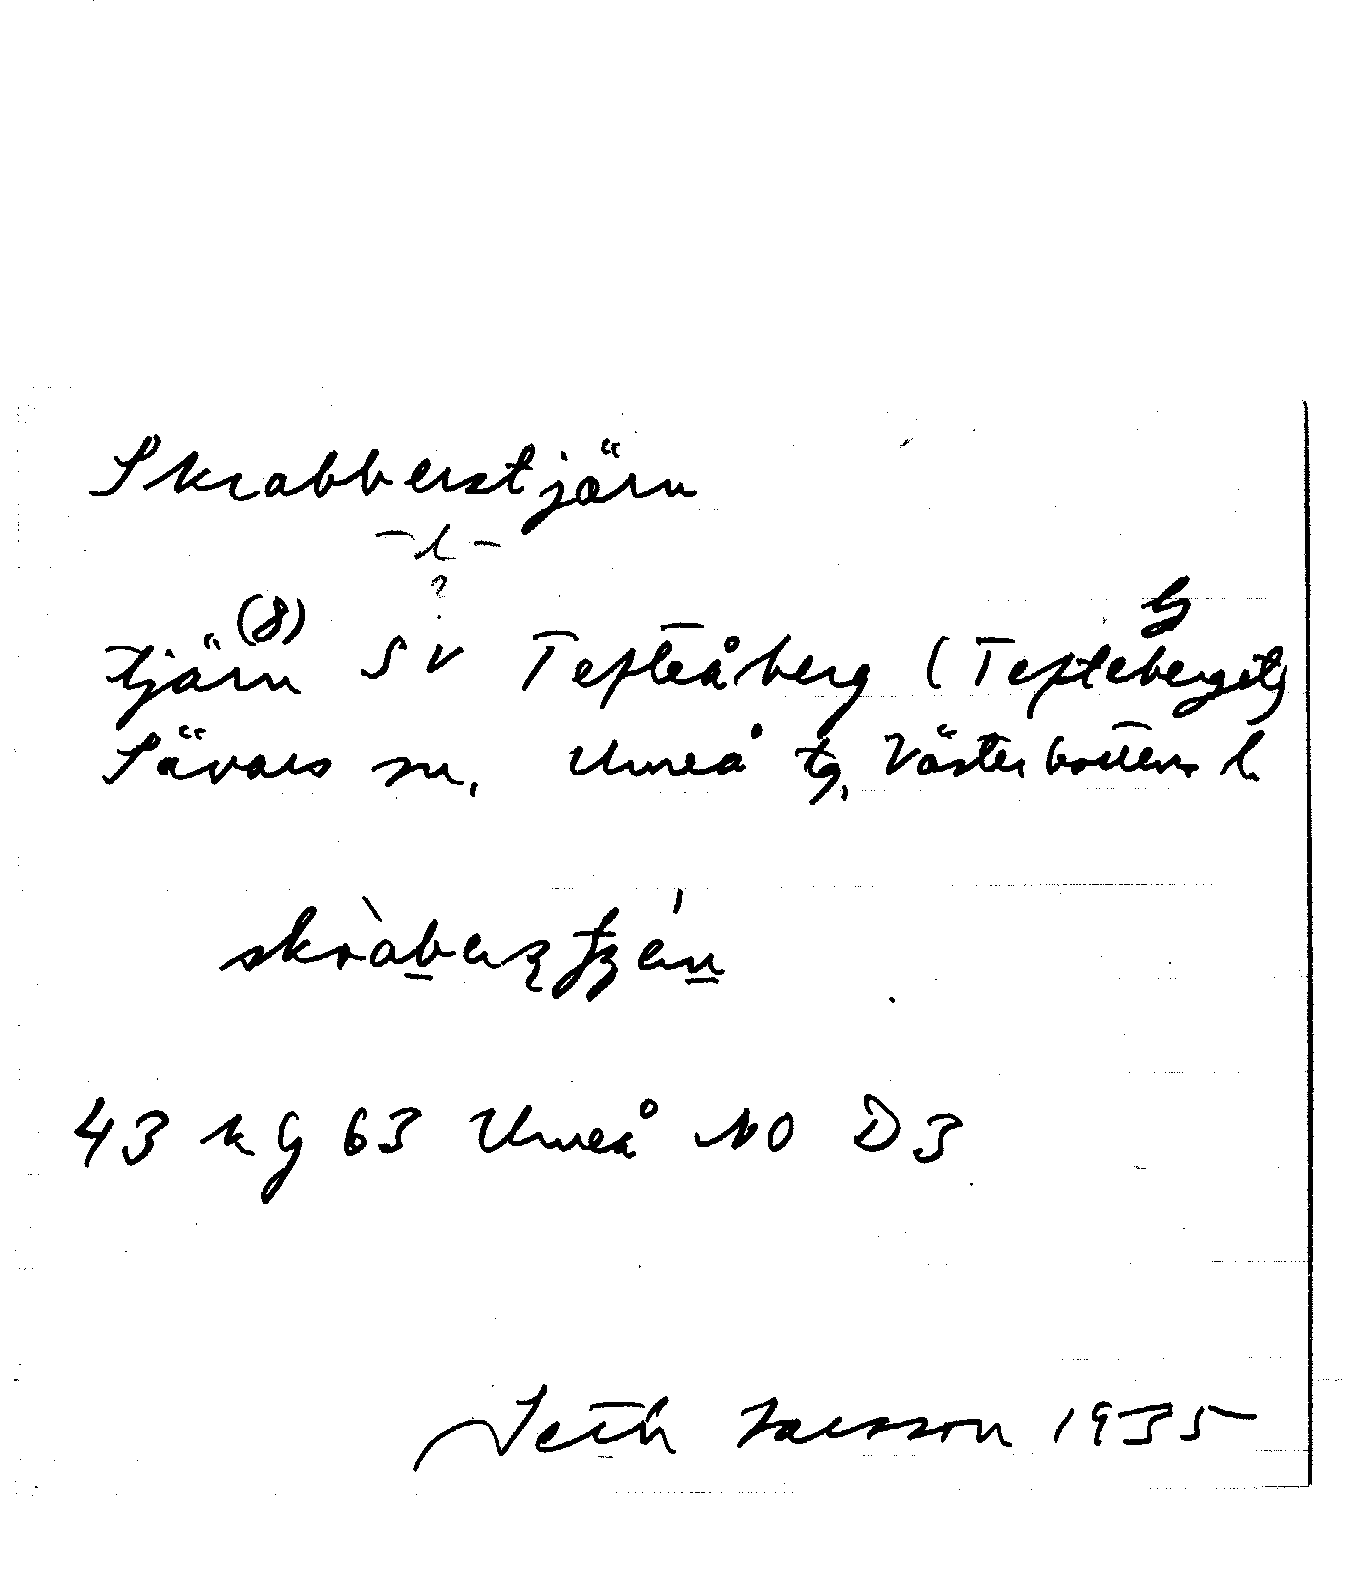 Skrabberstjärn
-l-
?
tjärn (8) SV Tefteåberg (Tefteberget)
Sävars sn, Umeå tg, Västerbottens l.
43 k G 63 Umeå NO D3
Seth Larsson 1935